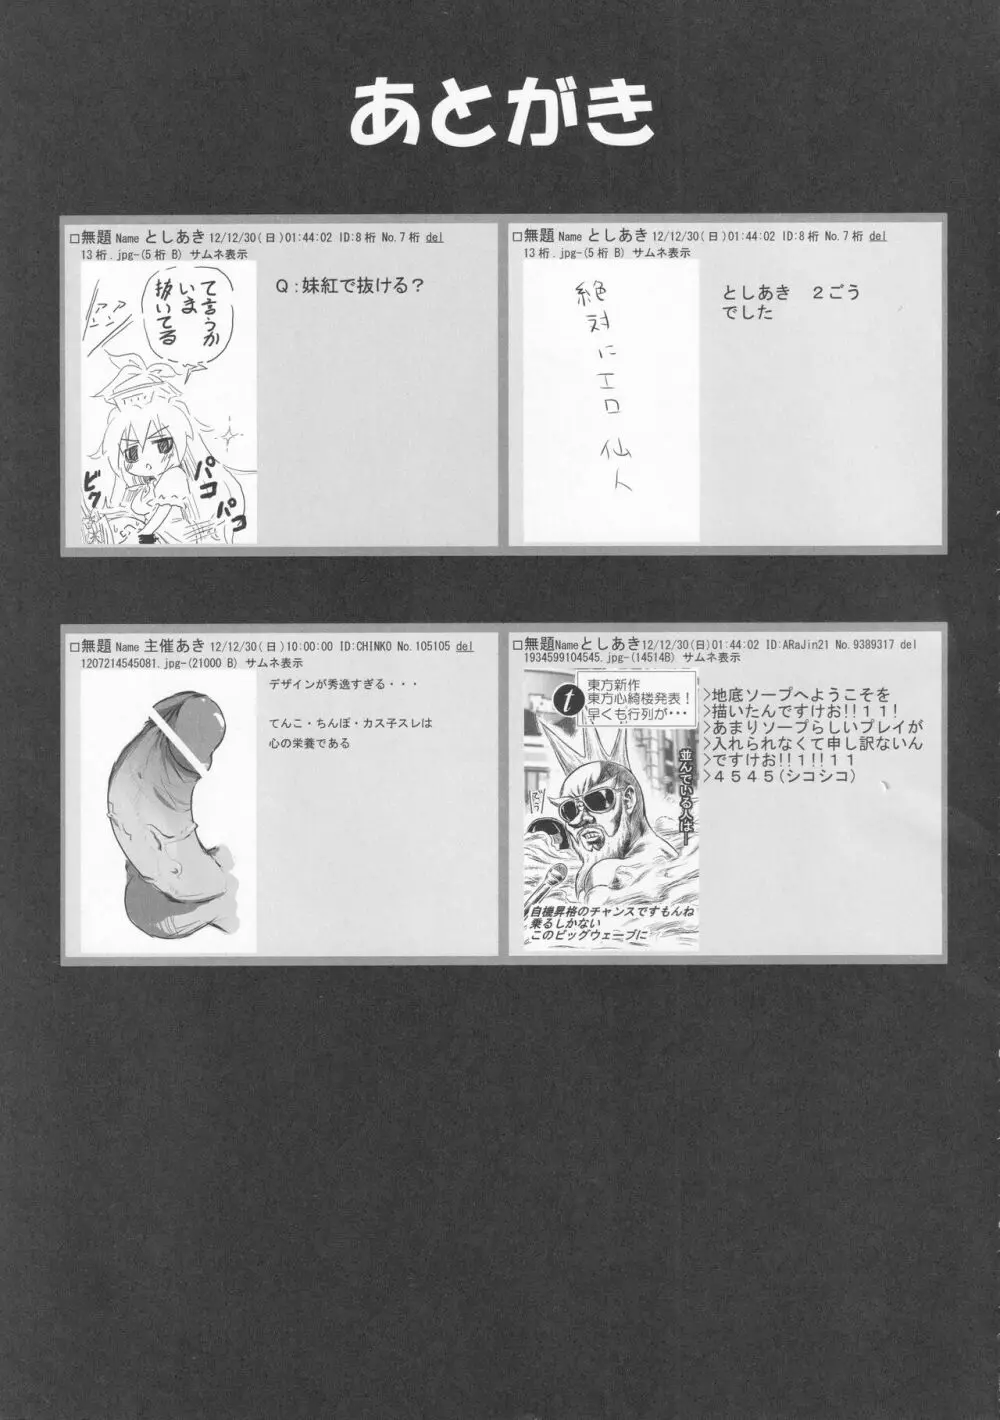 あとがき
□無題 Name としあき 12/12/30(日)01:44:02 ID:8桁 No.7桁 del
13桁.jpg-(5桁 B) サムネ表示
Q:妹紅で抜ける?
て言うか
いま
抜いてる
ビク
パコ
パコ
□無題 Name としあき 12/12/30(日)01:44:02 ID:8桁 No.7桁 del
13桁.jpg-(5桁 B) サムネ表示
絶対にエロ仙人
としあき 2ごう
でした
□無題 Name 主催あき 12/12/30(日)10:00:00 ID:CHINKO No.105105 del
1207214545081.jpg-(21000 B) サムネ表示
デザインが秀逸すぎる・・・
てんこ・ちんぽ・カス子スレは
心の栄養である
□無題Nameとしあき 12/12/30(日)01:44:02 ID:ARaJin21 No.9389317 del
1934599104545.jpg-(14514B) サムネ表示
t
東方新作
東方心綺楼発表!
早くも行列が・・・
並んでいる人はー
自機昇格のチャンスですもんね
乗るしかない
このビッグウェーブに
>地底ソープへようこそを
>描いたんですけお!!11!
>あまりソープらしいプレイが
>入れられなくて申し訳ないん
>ですけお!!1!!11
>4545(シコシコ)